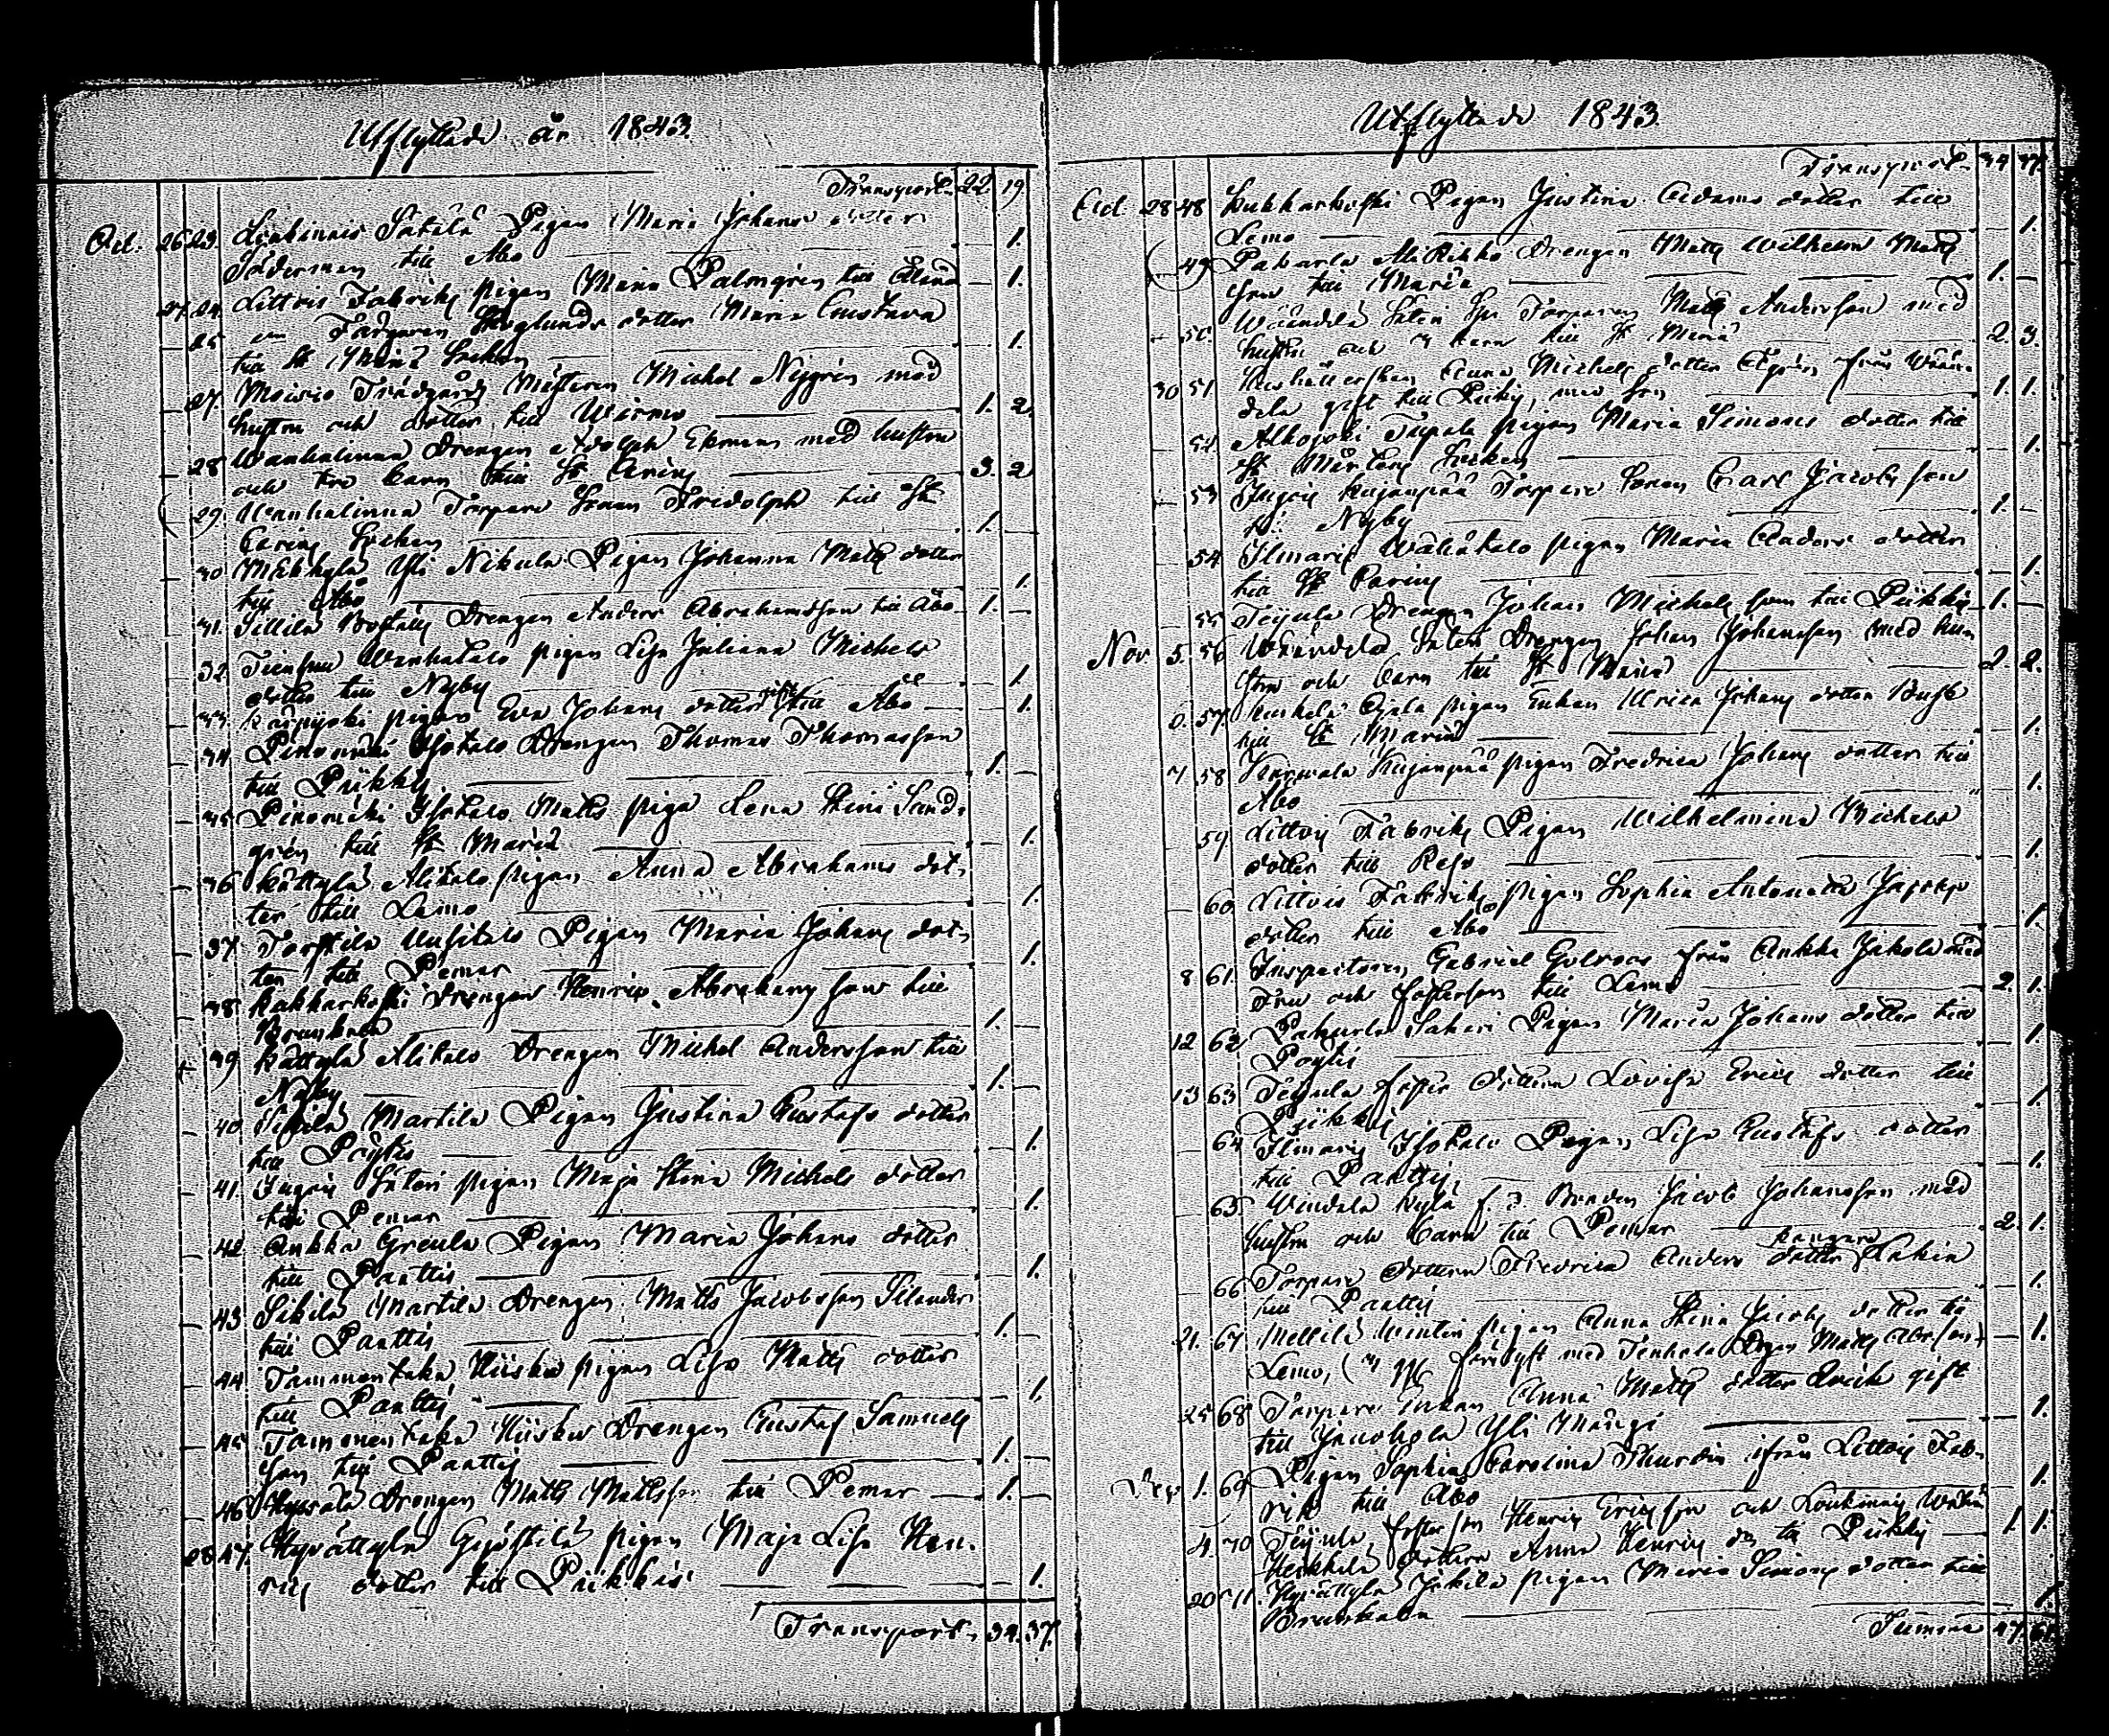 Utflyttade år 1843.
Transport 22. 19.
Oct. 26 23. Pigan Maria Johans dotter
Söderman till Åbo 1.
27. 24. Littois Fabriks pigan Maria Palmgren till 1.
25 Färgaren Skoglunds dotter Maria Gustava
till St Mariæ Socken 1.
27. Moisio Trädgårds Mästaren Michel Nygrén med
hustru och dotter till Wirmo 1. 2.
28 Wanhalinna Drengen Adolph Ekman med hustru
och tre barn till St Carins 3. 2.
29. Wanhalinna Torpare Sonen Fridolph till St
Carins Socken 1.
30 Yli Nikula Pigan Johanna Matts dotter
till Åbo 1.
31. Sillilä Boställs Drengen Anders Abrahamsson till Åbo 1.
32. Wanhatalo pigan Lisa Juliana Michels
dotter till Nyby 1.
33. pigan Eva Johans dotter gift till Åbo 1.
34. Pinomäki Isotalo Drengen Thomas Thomasson
till Pikkis 1.
35. Pinomäki Isotalo Matts piga Lena Stina Sand-
grén till St Mariæ 1.
36. Kättylä Alitalo pigan Anna Abrahams dot-
ter till Lemo 1.
37. Torstila Uusitalo Pigan Maria Johans dot-
ter till Pemar 1.
38. Kukkarkoski Drengen Henric Abrahams son till
Brunkala 1.
39. Kättylä Alitalo Drengen Michel Andersson till
Nyby 1.
40. Sikilä Martila Pigan Justina Gustafs dotter
till Pöytis 1.
41. Ingois Säteri pigan Maja Stina Michels dotter
till Pemar 1.
42. Ankka Greula Pigan Maria Johans dotter
till Panttis 1.
43 Sikilä Martila Drengen Matts Jacobsson Silander
till Panttis 1.
44 Tammentaka Hiisku pigan Lisa Matts dotter
till Panttis 1.
45 Tammentaka Hiisku Drengen Gustaf Samuels
son till Panttis 1.
46 Drengen Matts Mattsson till Pemar 1.
28 47. Hypättylä pigan Maja Lisa Hen-
rics dotter till Pikkis 1.
Transport 34. 37.
Utflyttade 1843.
Transport 34 37.
Oct. 28 48 Kukkarkoski Pigan Justina Adams dotter till
Lemo 1.
49 Pakurla Ali Kikko Drengen Matts Wilhelm Matts
son till Mariæ 1.
50. Wääntelä Säteri Torparen Matts Andersson med
hustru och 3 barn till St Mariæ 2. 3.
30 51. Hushållerskan Anna Michels dotter från Wään-
telä gift till Pikis, med son 1. 1.
52. Alhojoki Tapala pigan Maria Simons dotter till
St Mårtens Socken 1.
53 Ingois Kujanpää Torpare Sonen Carl Jacobs son
till Nyby 1.
54 Ilmaris Wähätalo pigan Maria Anders dotter
till St Carins 1.
55 Teijula Drengen Johan Michels son till Pikkis 1.
Nov. 5. 56 Wääntelä Säteri Drengen Johan Johansson med hus-
tru och barn till St Mariæ 2. 2.
6. 57. pigan Enkan Ulrica Johans dotter Busk
till St Mariæ 1.
7 58 Karwala Kujanpää pigan Fredrica Johans dotter till
Åbo 1.
59 Littois Fabriks Pigan Wilhelmina Michels
dotter till Reso 1.
60. Littois Fabriks pigan Sophia Antonetta
dotter till Åbo 1.
8 61. Inspectoren Gabriel från Ankka Jakola med
Fru och fosterson till Lemo 2. 1.
12 62 Pakurla Sakari Pigan Maria Johans dotter till
Pöytis 1.
13 63 Teijula foster dottren Lovisa Erics dotter till
Pikkis 1.
64 Ilmaris Isotalo Pigan Lisa Gustafs dotter
till Panttis 1.
65 Kylä f. d. Bonden Jacob Johansson med
hustru och barn till Pemar 2. 1.
66 Torpare dottren Fredrica Anders dotter Lakia
till Panttis 1.
21. 67 pigan Anna Stina Jacobs dotter till
Lemo, 1.
25 68 Torpare Enkan Anna Matts dotter gift
till Yli 1.
Dec. 1. 69 Pigan Sophia Carolina Thurdin ifrån Littois Fab-
rik till Åbo 1.
4. 70 Teijula foster son Henric Ericsson och
dottren Anna Henrics dr till Pikkis 1. 1.
20 71. Hypättylä Jokila pigan Maria Simons dotter till
Brunkala 1.
Summa 47. 61.